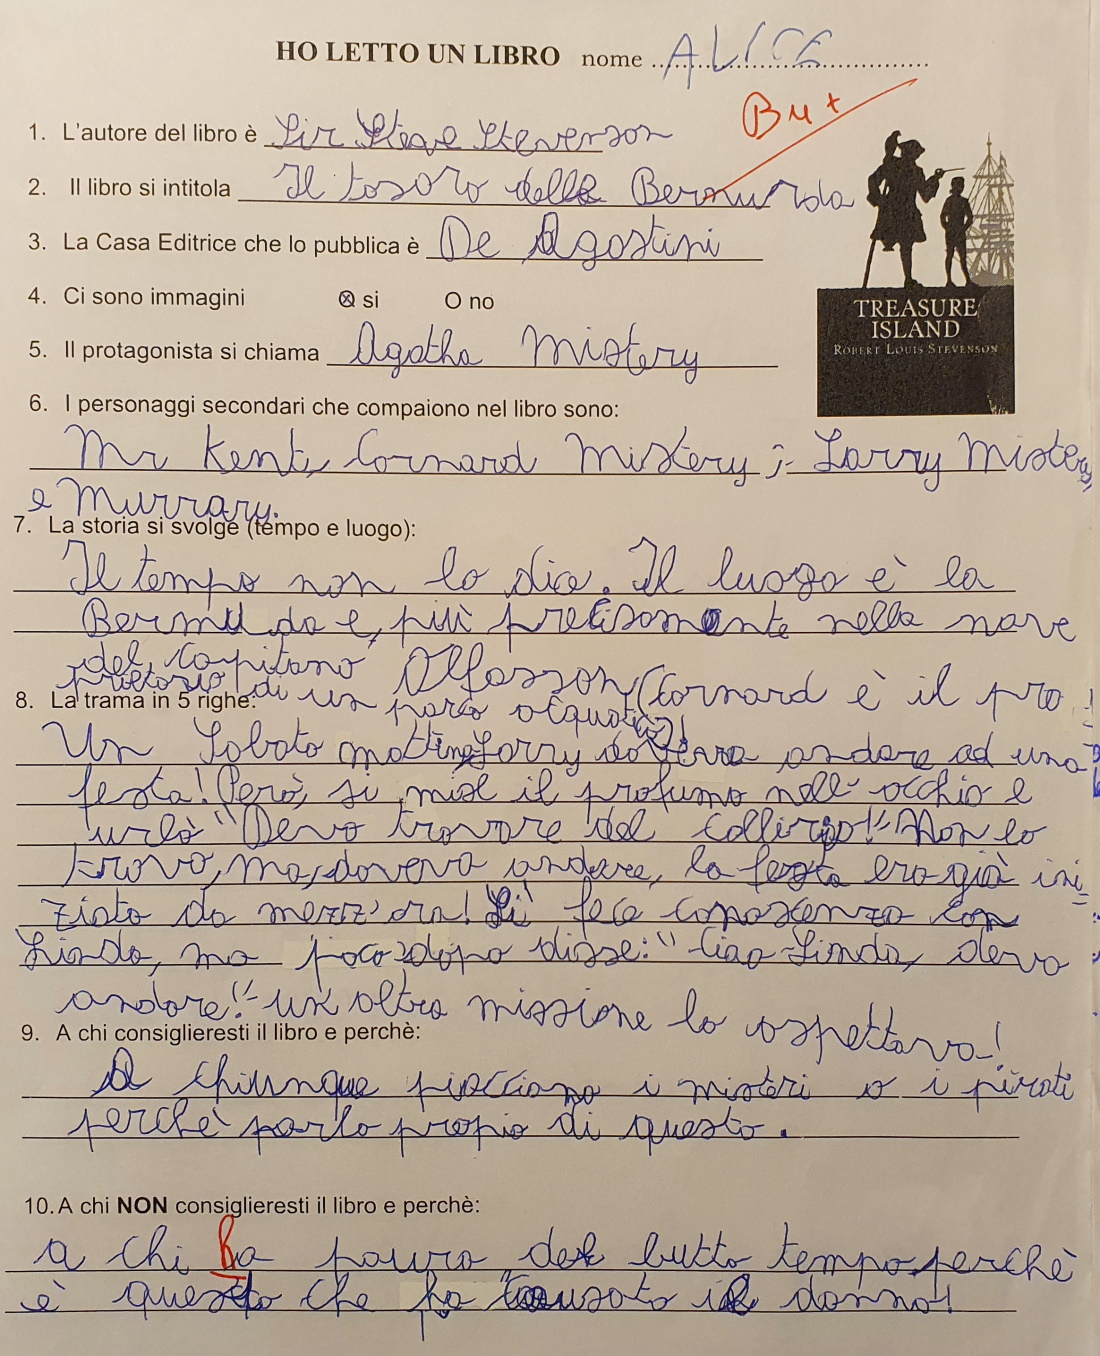 HO LETTO UN LIBRO nome ALICE
Bu +
1. L'autore del libro è Sir Steve Stevenson
2. Il libro si intitola Il tosoro delle Bermurda
3. La Casa Editrice che lo pubblica è De Agostini
4. Ci sono immagini ⊗ si O no
5. Il protagonista si chiama Agatha Mistery
TREASURE
ISLAND
ROBERT LOUIS STEVENSON
6. I personaggi secondari che compaiono nel libro sono:
Mr Kent, Cornard Mistery ; Larry Mistery,
e Murrary.
7. La storia si svolge (tempo e luogo):
Il tempo non lo dice. Il luogo è la
Bermuda e, più precisamente nella nave
del capitano Olfasson (Cornard è il pro
prietario di un parco acquatico)!
8. La trama in 5 righe:
Un Sabato mattina Larry doveva andare ad una
festa! Però, si mise il profumo nell'occhio e
urlò "Devo trovare del collirio!" Non lo
trovo, ma, doveva andare, la festa era già ini
ziata da mezz'ora! Lì fece conoscenza con
Linda, ma poco dopo disse: "Ciao Linda, devo
andare!" un'altra missione lo aspettava!
9. A chi consiglieresti il libro e perchè:
A chiunque piacciano i misteri o i pirati
perchè parla propio di questo.
10. A chi NON consiglieresti il libro e perchè:
a chi ha paura del butto tempo perchè
è questo che ha causato il danno!